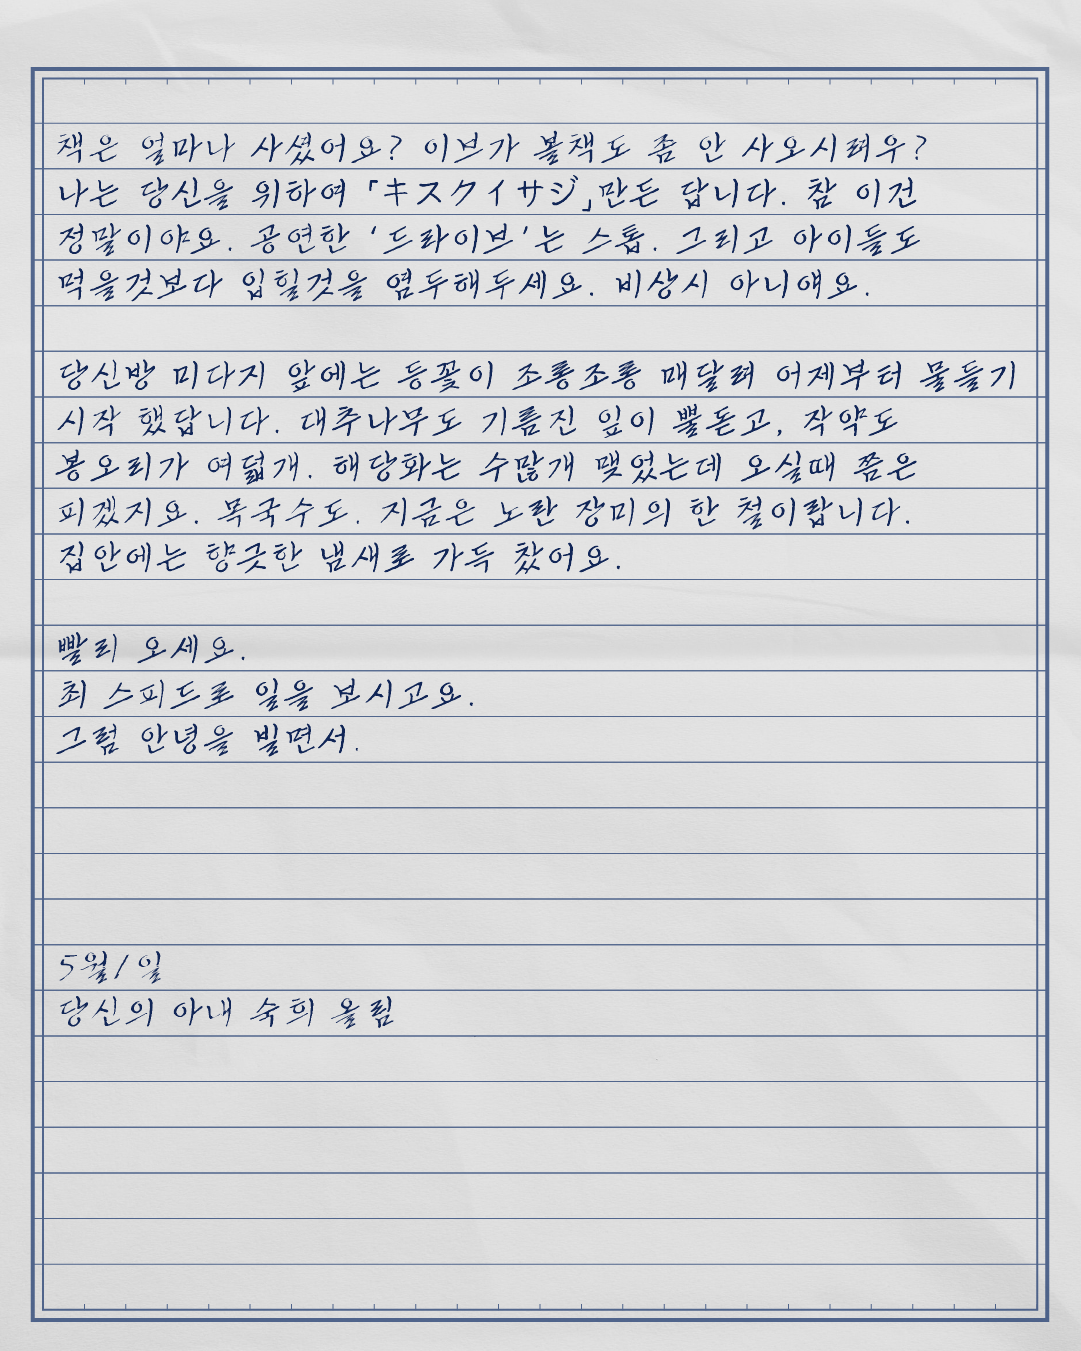 책은 얼마나 사셨어요? 이브가 볼책도 좀 안 사오시려우?
나는 당신을 위하여 「キスクイサジ」만든 답니다. 참 이건
정말이야요. 공연한 '드라이브'는 스톱. 그리고 아이들도
먹을것보다 입힐것을 염두해두세요. 비상시 아니얘요.
당신방 미다지 앞에는 등꽃이 조롱조롱 매달려 어제부터 물들기
시작 했답니다. 대추나무도 기름진 잎이 뿔돋고, 작약도
봉오리가 여덟개. 해당화는 수많개 맺었는데 오실때 쯤은
피겠지요. 목국수도. 지금은 노란 장미의 한 철이랍니다.
집안에는 향긋한 냄새로 가득 찼어요.
빨리 오세요.
최 스피드로 일을 보시고요.
그럼 안녕을 빌면서.
5월1일
당신의 아내 숙희 올림